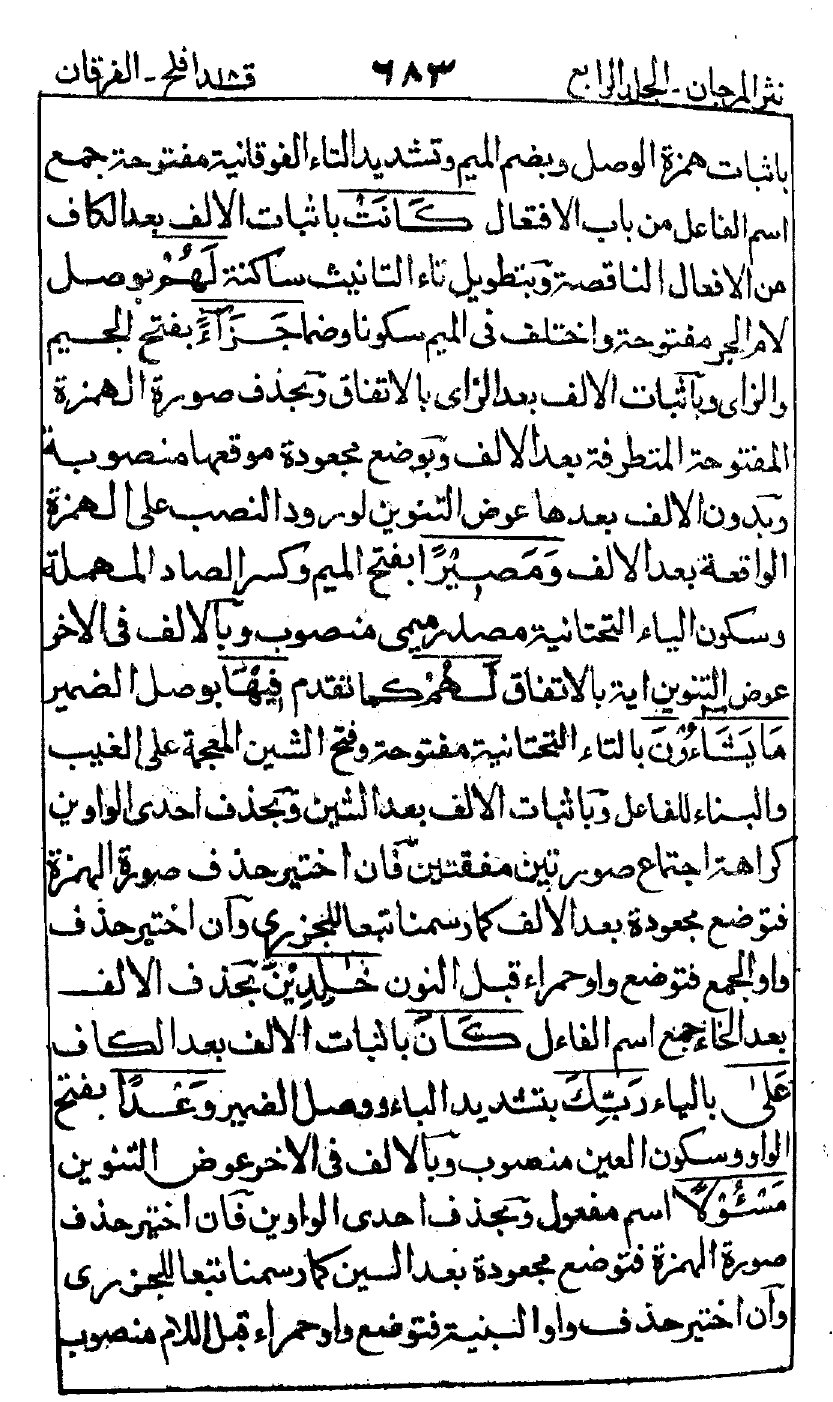 نثر المرجان - المجلد الرابع ٦٨٣ قد افلح - الفرقان
باثبات همزة الوصل وبضم الميم وتشديد التاء الفوقانية مفتوحة جمع
اسم الفاعل من باب الافتعال كَانَتْ باثبات الالف بعد الكاف
من الافعال الناقصة وبتطويل تاء التانيث ساكنة لَهُمْ بوصل
لام الجر مفتوحة واختلف فى الميم سكونا وضما جَزَآءً بفتح الجيم
والزاى وباثبات الالف بعد الزاى بالاتفاق وبحذف صورة الهمزة
المفتوحة المتطرفة بعد الالف وبوضع مجعودة موقعها منصوبة
وبدون الالف بعدها عوض التنوين لورود النصب على الهمزة
الواقعة بعد الالف وَمَصِيْرًا بفتح الميم وكسر الصاد المهملة
وسكون الياء التحتانية مصدر ميمى منصوب وبالالف فى الاخر
عوض التنوين اية بالاتفاق لَهُمْ كما تقدم فِيْهَا بوصل الضمير
مَا يَشَآءُوْنَ بالتاء التحتانية مفتوحة وفتح الشين المعجمة على الغيب
والبناء للفاعل وباثبات الالف بعد الشين وبحذف احدى الواوين
كراهة اجتماع صورتين متفقتين فان اختير حذف صورة الهمزة
فتوضع مجعودة بعد الالف كما رسمنا تبعا للجزرى وان اختير حذف
واو الجمع فتوضع واو حمراء قبل النون خٰلِدِيْنَ بحذف الالف
بعد الخاء جمع اسم الفاعل كَانَ باثبات الالف بعد الكاف
عَلٰى بالياء رَبِّكَ بتشديد الباء ووصل الضمير وَعْدًا بفتح
الواو وسكون العين منصوب وبالالف فى الاخر عوض التنوين
مَسْئُوْلًا اسم مفعول وبحذف احدى الواوين فان اختير حذف
صورة الهمزة فتوضع مجعودة بعد السين كما رسمنا تبعا للجزرى
وان اختير حذف واو البنية فتوضع واو حمراء قبل اللام منصوب